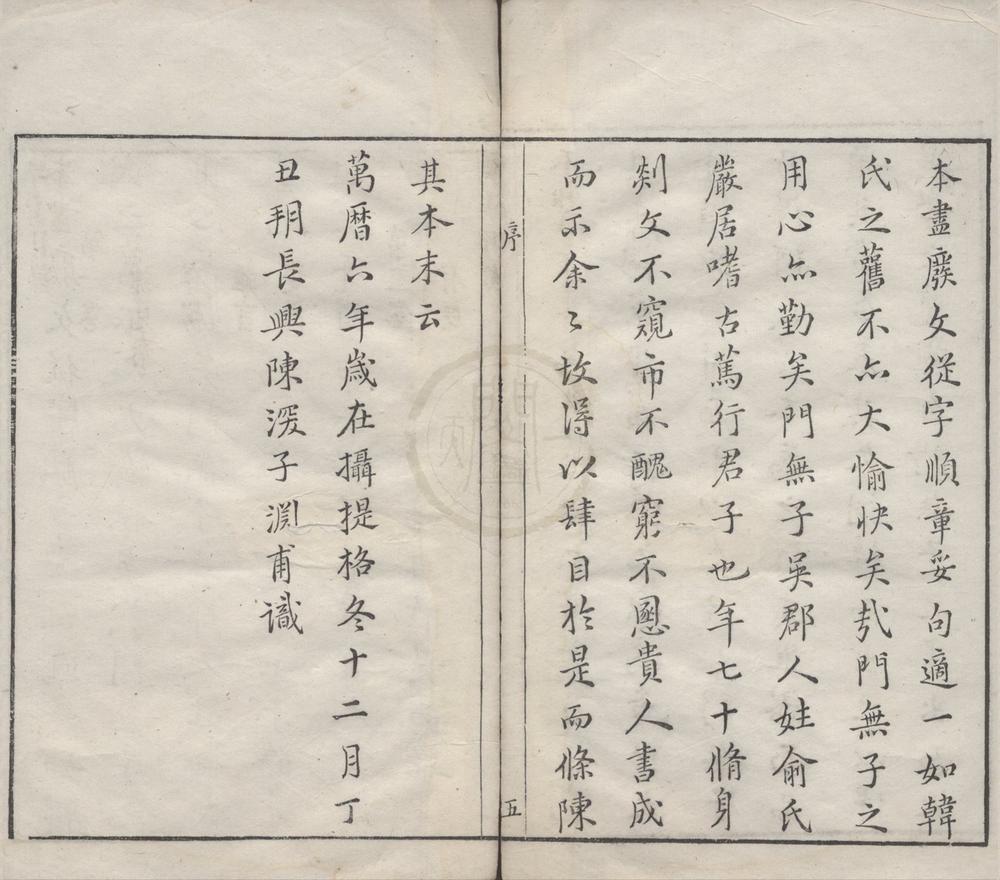 本盡廢文從字順章妥句適一如韓
氏之舊不亦大愉快矣㢤門無子之
用心亦勤矣門無子吳郡人姓俞氏
嚴居嗜古篤行君子也年七十脩身
剡文不窺市不醜窮不慁貴人書成
而示余〻故得以肆目於是而條陳
序
五
其本末云
萬曆六年歲在攝提格冬十二月丁
丑朔長興陳深子淵甫識